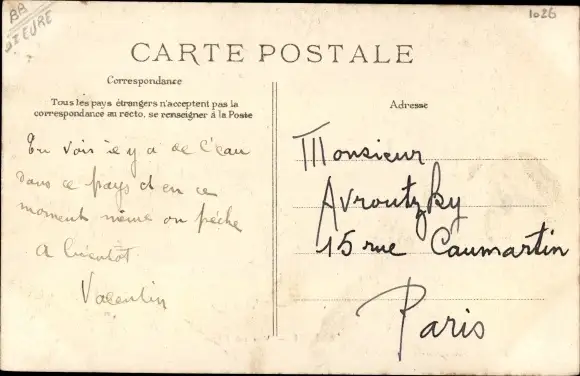 BB
EURE
1026
CARTE POSTALE
Correspondance
Tous les pays étrangers n'acceptent pas la
correspondance au recto, se renseigner à la Poste
Adresse
Tu vois il y a de l'eau
dans ce pays et en ce
moment même on pêche
A bientôt
Valentin
Monsieur
Avroutzky
15 rue Caumartin
Paris